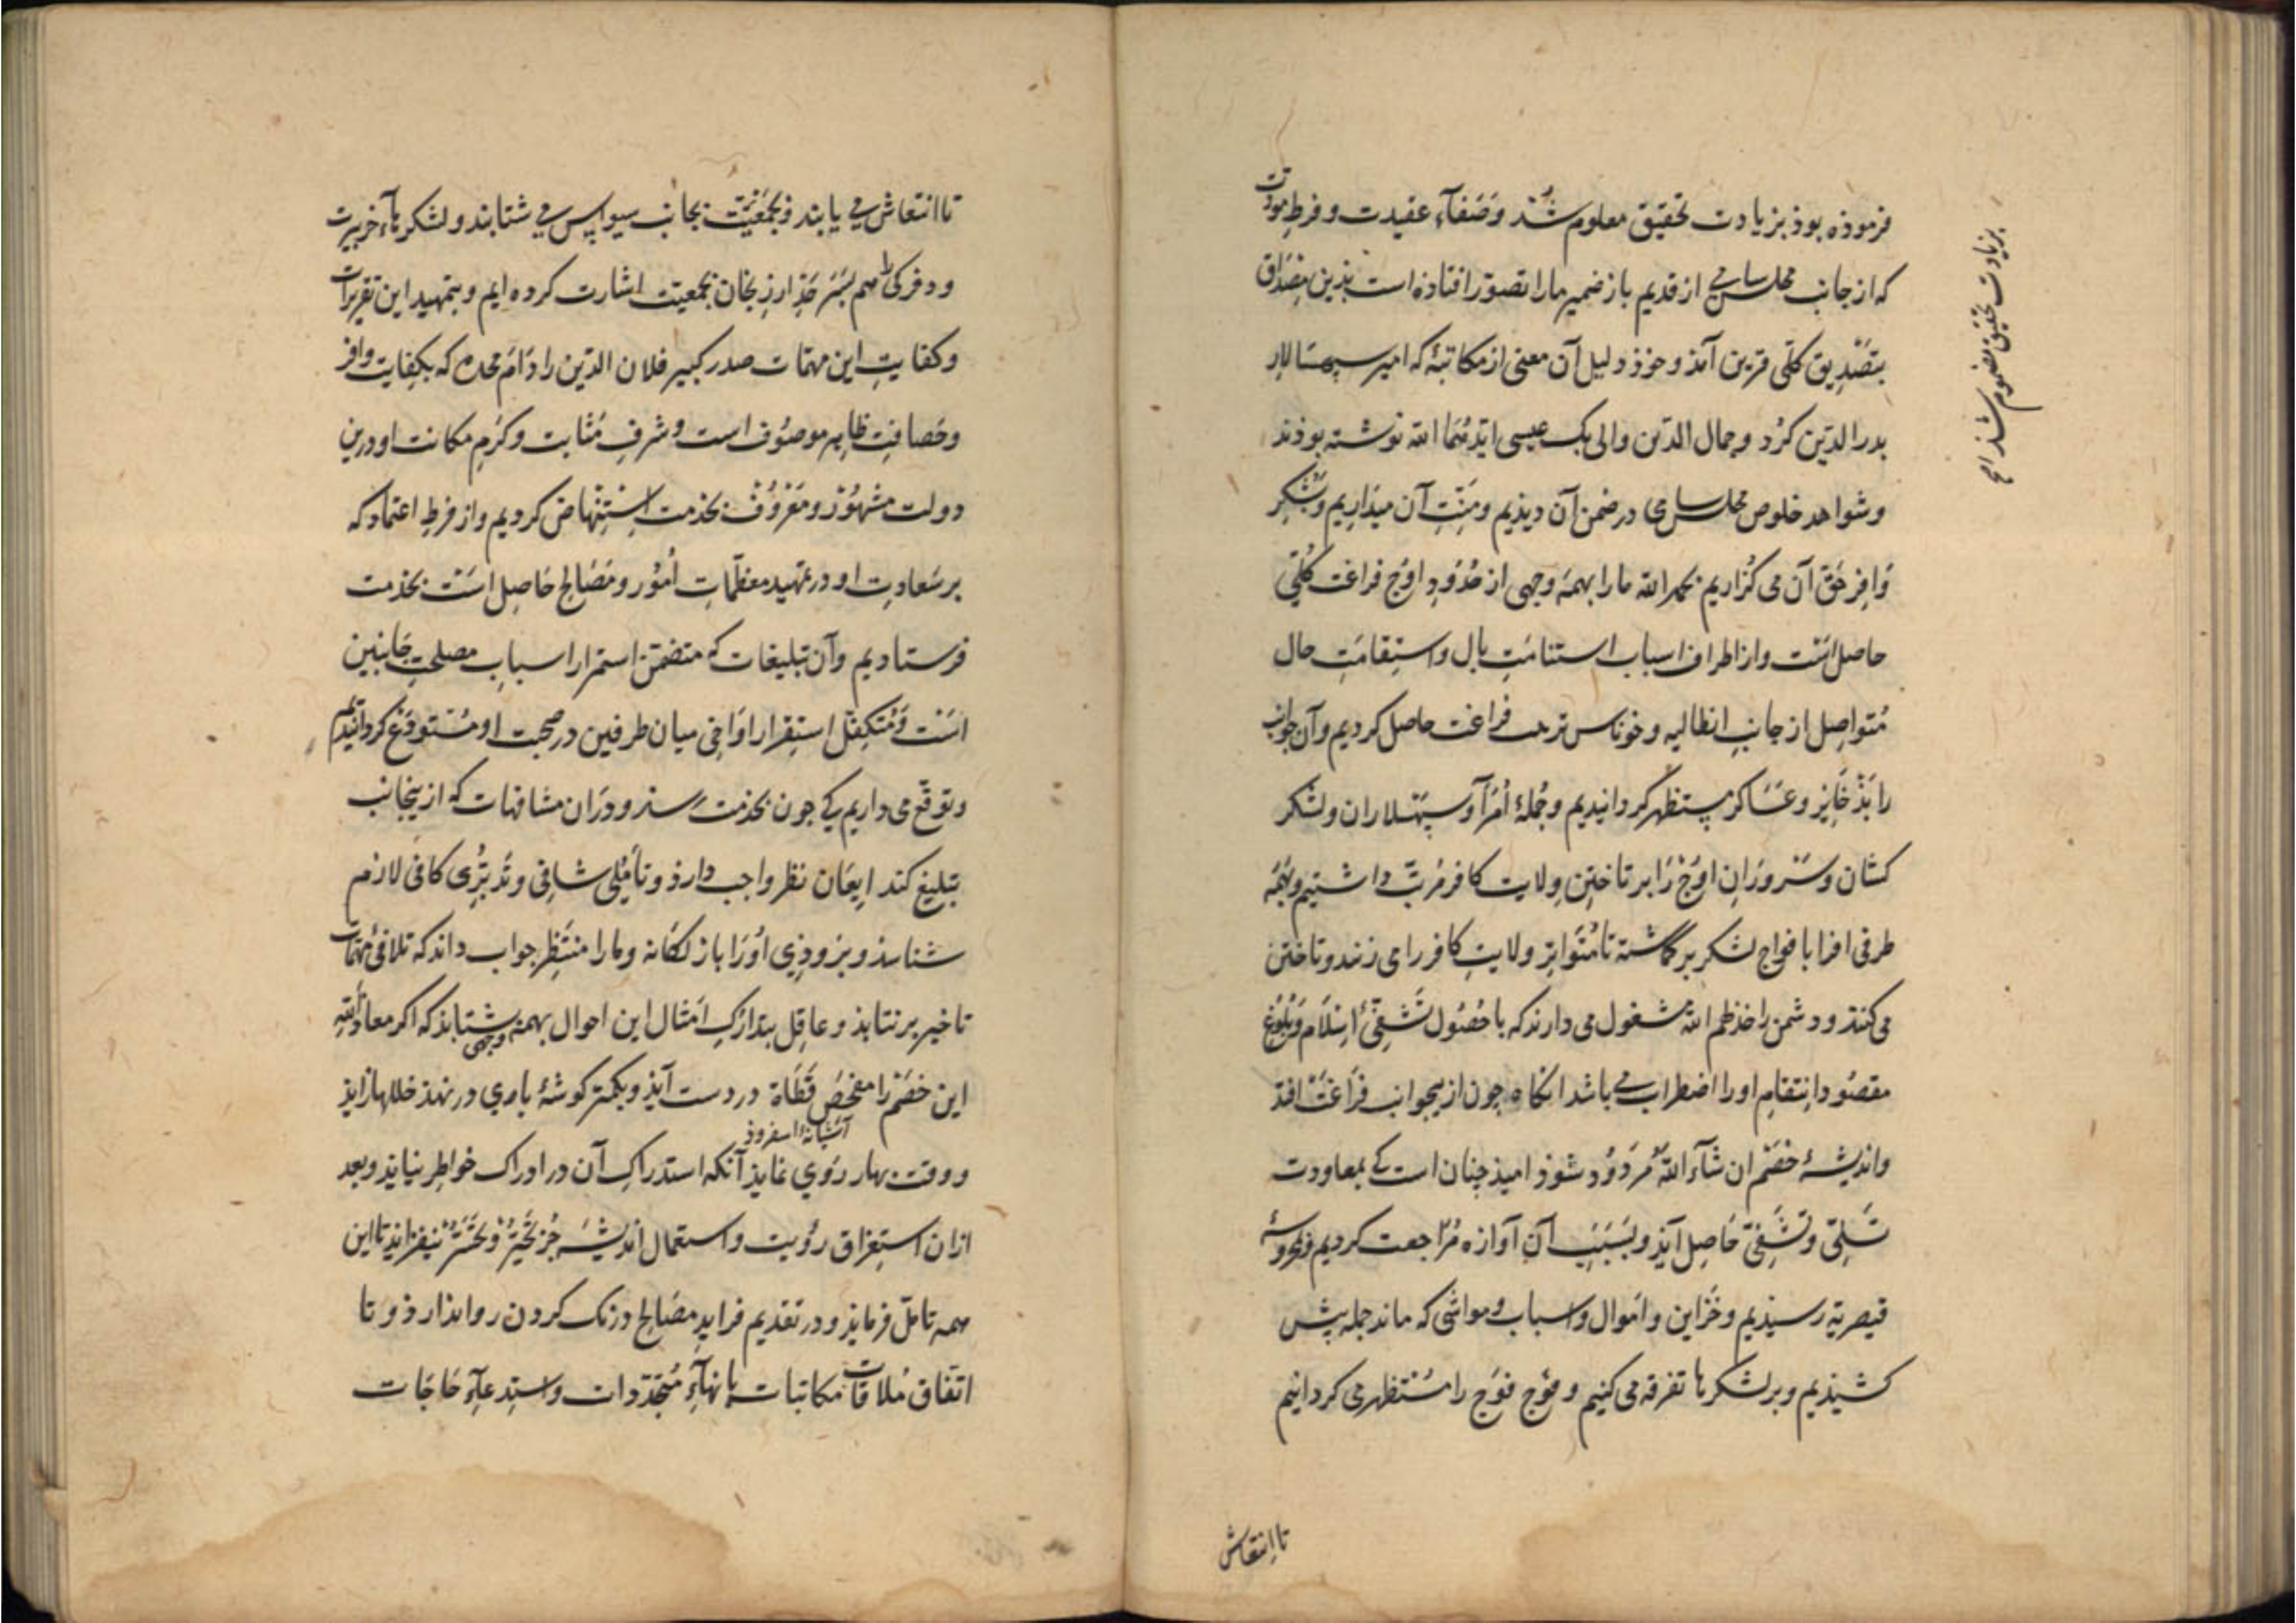 فرموذه بوذ بزیادت تحقیق معلوم شُذ وَصَفآءِ عقیدت و فرطِ مودّت
که از جانب مجلس سامی از قدیم باز ضمیر ما را تصوّر افتاذه است بذین مِصْداق
بتَصْدِیق کلّی قرین آمَذ و خوذ دلیل آن معنی از مکاتبهٔ که امیر سپهسالار
بدرالدّین کُرد و جمال الدّین والی بک عیسی ایّدهُمَا الله نوشته بوذند
و شواهد خلوص مجلس سامی در ضمن آن دیذیم و مِنّتِ آن میذاریم و شکرِ
وَافِر حَقّ آن می گزاریم بحمد الله ما را بهمه وجهی از حُدُودِ اوْج فراغت کُلّی
حاصل است و از اطراف اسباب استنامَتِ بال و استِقامَتِ حال
مُتواصِل از جانبِ انطالیه و خوناس ترهب فراغت حاصل کردیم و آن جوانب
را بذَخَایِر و عَسَاکر مستظهر گردانیدیم و جُملهٔ اُمَرآ و سپهسلاران و لشکر
کشان و سَرْوَرَانِ اوْج رَا بر تاختنِ ولایت کافر مُرتّب داشتیم و بهَمَه
طرفی افرا با فواج لشکر برگماشته تا مُتَوَاتِر ولایتِ کافر را می زنند و تاختن
می کنند و دشمن را خذلهم الله مشغول می دارند که با حُصُول تَشَفّیِ اِسْلَام وَ بُلوُغ
مقصُود اِنتقام او را اضطراب می باشد انکاه چون ازیجوانب فَرَاغَت افتذ
و اندیشهٔ خَصْم ان شآءَ اللّه مَرْدُود شوذ امیذ چنان است کی بمعاودت
تَسَلّی وَ تَشَفّی حَاصِل آیَذ و بسَبَبِ آن آوازه مُراجعت کردیم و بمحروسهٔ
قیصریّه رسیذیم و خَزَاین و اَموال و اسباب و مواشی که ماند جمله پیش
کشیذیم و بر لشکرها تفرقه می کنیم و فَوْج فوْج را مُسْتظهر می کردانیم
تا اِنتعاش
بزیادت تحقیق مفهوم شذ
تا انتعاش می یابند و بجَمْعیّت بجانب سیواس می شتابند و لشکرهآءِ خربرت
و دفرکی هم بسَرحَدِّ ارزنجان بجمعیّت اشارت کرده ایم و بتمهید این تقریرات
و کفایتِ این مهمّات صدر کبیر فلان الدّین را دَامَ مجده که بکِفایت وافر
و حَصافتِ ظاهر موصُوف است و شرفِ مَثابت و کَرَمِ مکانت او درین
دولت مشهُور و مَعْرُوف بخذمت اسْتِنهاض کردیم و از فرطِ اعتماد که
بر سَعادتِ او در تمهید معظّماتِ اُمُور و مَصَالح حَاصِل اسَت بخذمت
فرستادیم و آن تبلیغات که متضمّن استمرار اسبابِ مصلحتِ جَانبین
اسَت وَ مُتکفّل استِقرار اوَاخیِ میان طرفین در صحبت او مُستودَع گردانیدیم
و توقّع می داریم کی چون بخذمت رسذ و دَران مشافهات که ازینجانب
تبلیغ کند اِیعَان نظر واجب دارذ و تأمُلی شافی و تَدَبّرُی کافی لازم
شناسذ و بزوذِی اوُرَا باز کَرْدَانذ و ما را منتَظرِ جواب داند که تلافیِ مُهمّات
تاخیر برنتابذ و عاقِل بتدارُکِ اَمْثال این احوال بهمه وجهی شتابذ که اکر معاذَ اللّه
این خصْم را مَفْحَصُ قَطَاة در دست آیَذ و بکمتر کوشهٔ باوری در نهذ خللها زایذ
آشیانهٔ اسفروذ
و وقت بهار رُوی نمایذ آنکه استدراکِ آن در ادراک خواطِر نیایذ و بعد
ازان استِغراق رؤیت و استعمال اَندیشَه جُز تَحَیُّر وَ تحَسُّر نیفزایذ تا این
همه تامّل فرمایذ و در تقدیم فرایدِ مصَالح درنک کردن روا نذارذ و تا
اتفاق مُلاقات مکاتبات بانهآءِ مُتجَدّدات و استِدعآءِ حَاجَات